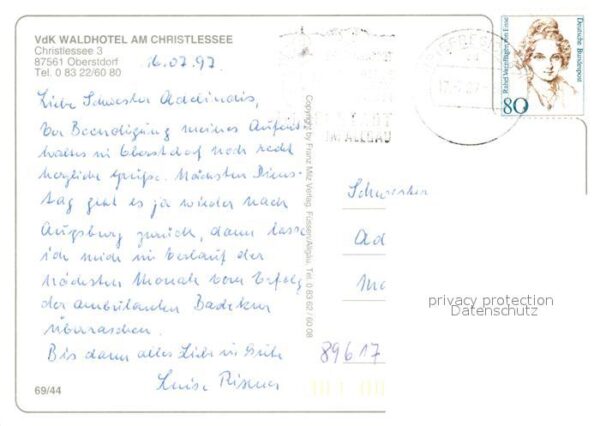 VdK WALDHOTEL AM CHRISTLESSEE
Christlessee 3
87561 Oberstdorf
Tel. 0 83 22/60 80
16.07.97
Liebe Schwester Adelindis,
Vor Beendigung meines Aufent
haltes in Oberstdorf noch recht
herzliche Grüße. Nächsten Diens-
tag geht es ja wieder nach
Augsburg zurück, dann lasse
ich mich im Verlauf der
nächsten Monate vom Erfolg
der ambulanten Badekur
überraschen.
Bis dann alles Liebe und Gute
Luise
69/44
Copyright by Franz Milz Verlag, Füssen/Allgäu, Tel. 0 83 62 / 60 08
IM ALLGÄU
Deutsche Bundespost
80
Schwester
Ad
Ma
89617
privacy protection
Datenschutz